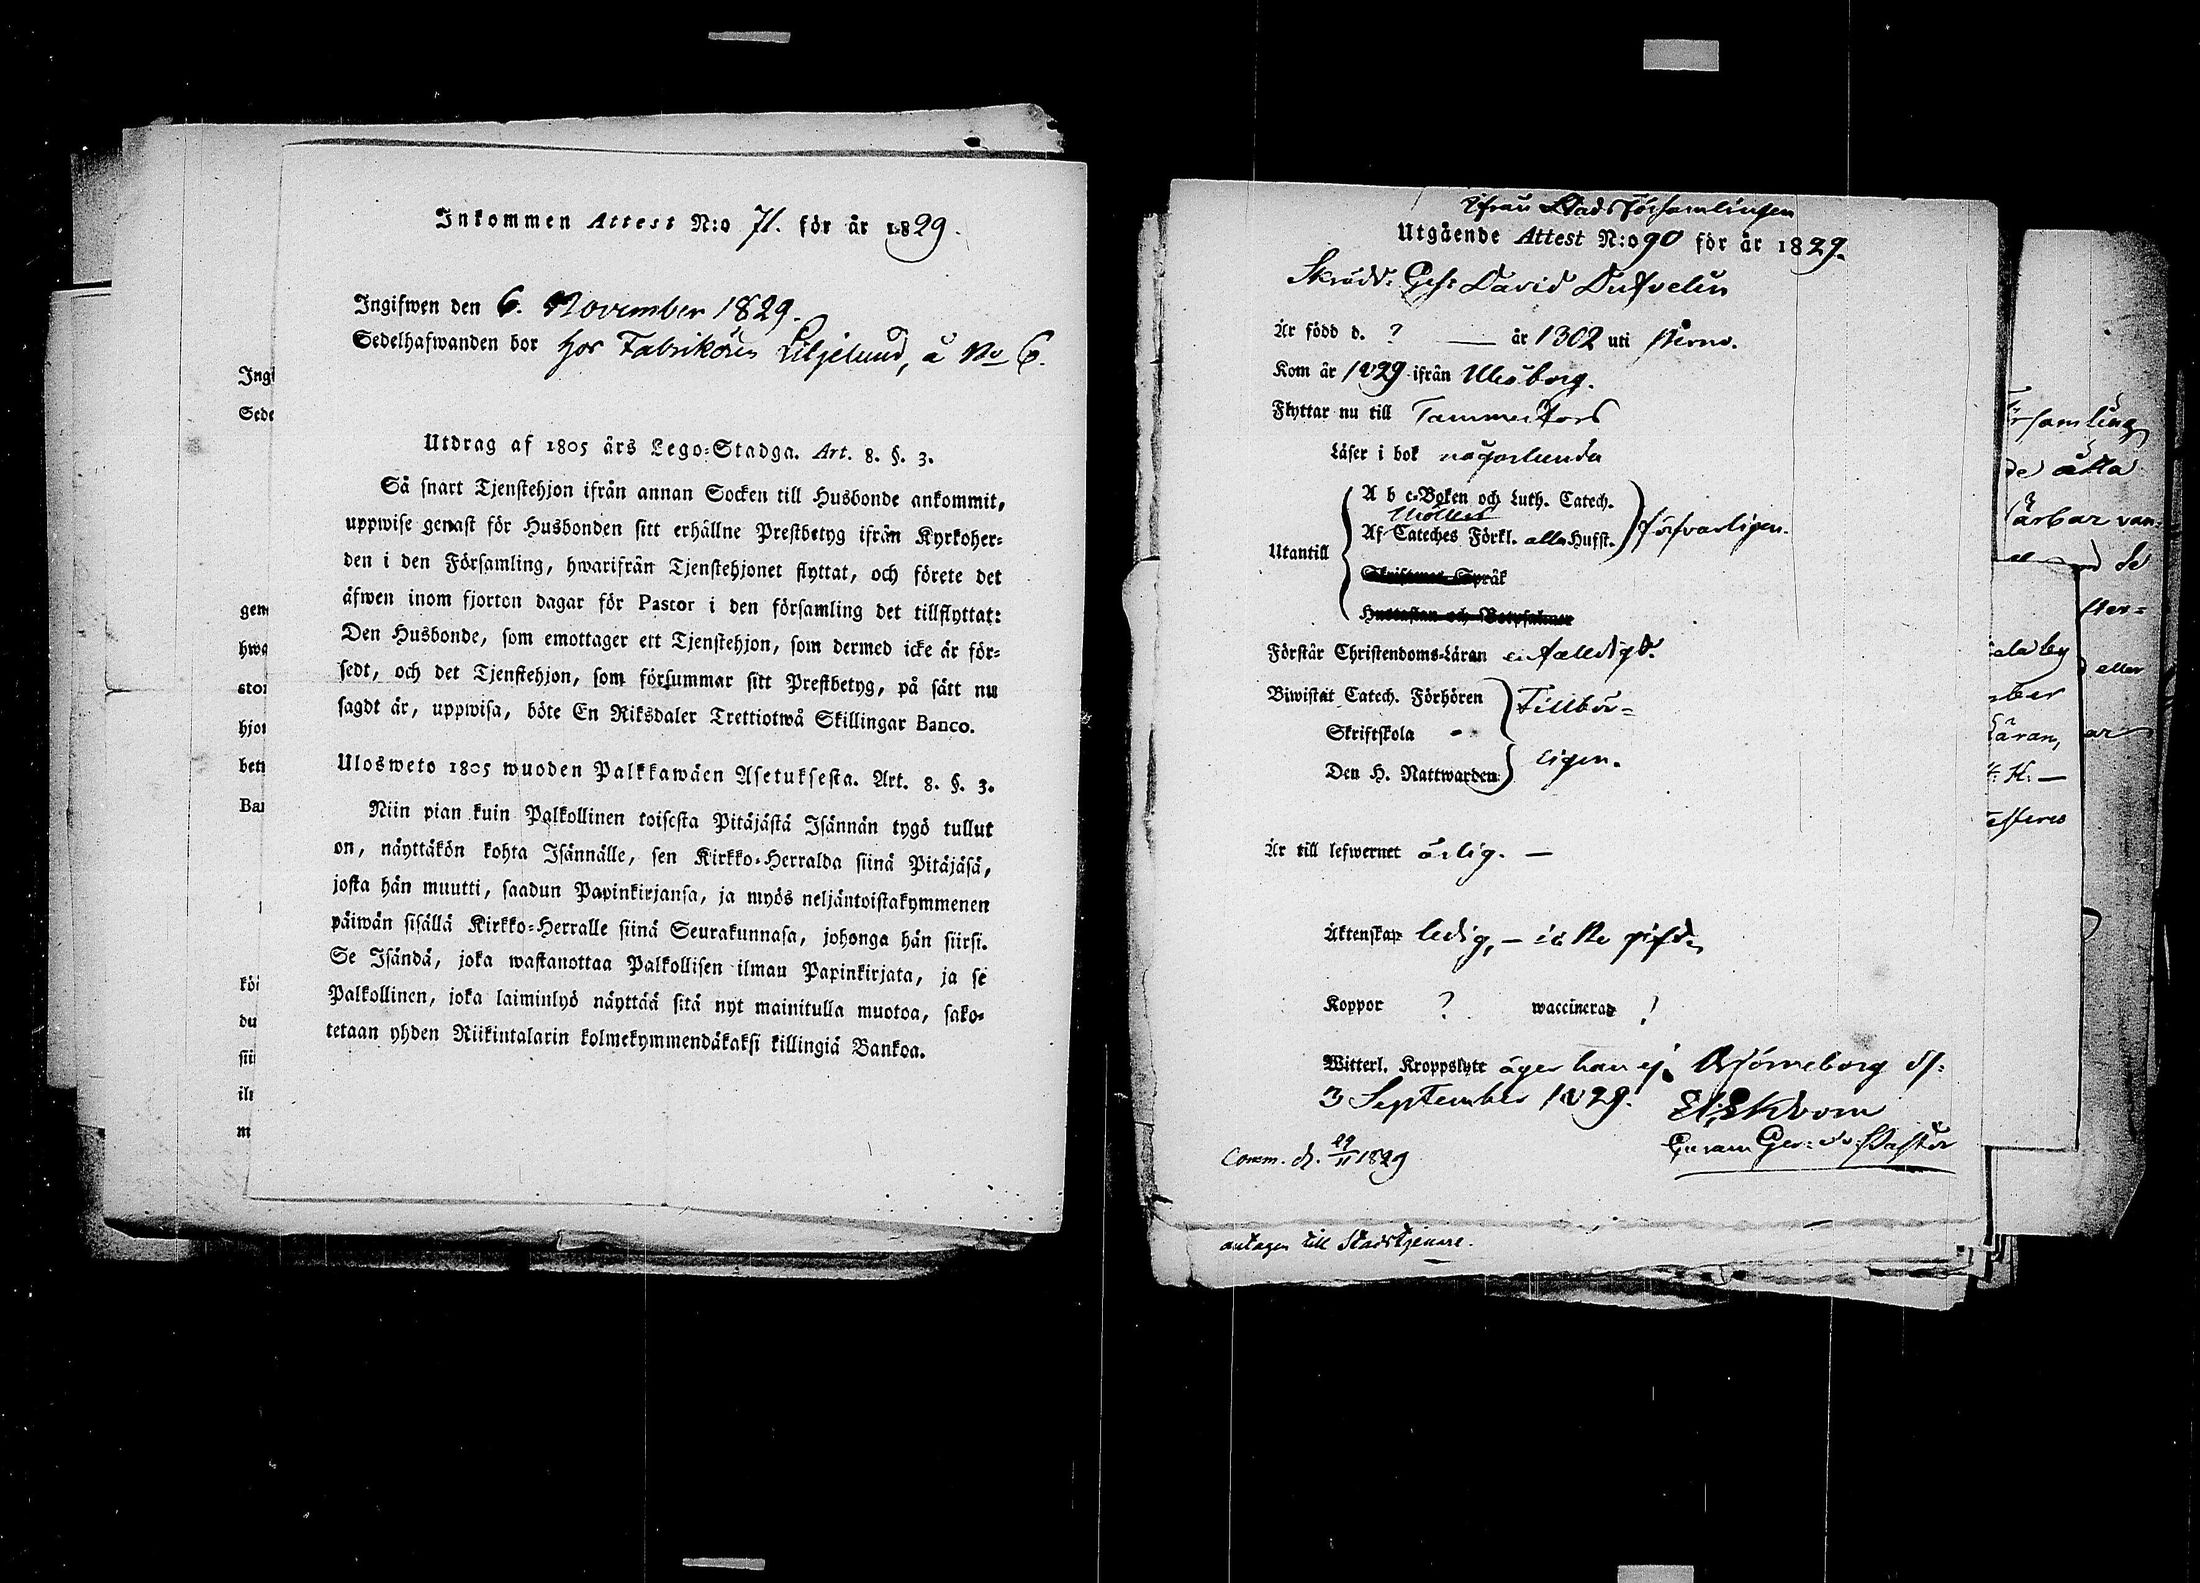 Inkommen Attest N:o 71. för år 1829.
Ingifwen den 6. November 1829.
Sedelhafwanden bor hos Fabrikören Liljelund, å No 6.
Utdrag af 1805 års Lego-Stadga. Art. 8. §. 3.
Så snart Tjenstehjon ifrån annan Socken till Husbonde ankommit,
uppwise genast för Husbonden sitt erhållne Prestbetyg ifrån Kyrkoher-
den i den Församling, hwarifrån Tjenstehjonet flyttat, och förete det
äfwen inom fjorton dagar för Pastor i den församling det tillflyttat:
Den Husbonde, som emottager ett Tjenstehjon, som dermed icke är för-
sedt, och det Tjenstehjon, som försummar sitt Prestbetyg, på sätt nu
sagdt är, uppwisa, böte En Riksdaler Trettiotwå Skillingar Banco.
Ulosweto 1805 wuoden Palkkawäen Asetuksesta. Art. 8. §. 3.
Niin pian kuin Palkollinen toisesta Pitäjästä Isännän tygö tullut
on, näyttäkön kohta Isännälle, sen Kirkko-Herralda siinä Pitäjäsä,
josta hän muutti, saadun Papinkirjansa, ja myös neljäntoistakymmenen
päiwän sisällä Kirkko-Herralle siinä Seurakunnasa, johonga hän siirsi.
Se Isändä, joka wastanottaa Palkollisen ilman Papinkirjata, ja se
Palkollinen, joka laiminlyö näyttää sitä nyt mainitulla muotoa, sako-
tetaan yhden Riikintalarin kolmekymmendäkaksi killingiä Bankoa.
Ingi
Sede
gen
hwa
stor
hjor
bety
Bar
köi
du
sii
ilr
m
ifrån Stadsförsamlingen
Utgående Attest N:o 90 för år 1829.
Skrädd: Ges: David Dufvelin
Är född d. ? — år 1802 uti Perno.
Kom år 1829 ifrån Uleåborg.
Flyttar nu till Tammerfors
Läser i bok någorlunda
Utantill
A b c-Boken och Luth. Catech.
Af Cateches Förkl. alla Hufst. försvarligen.
Skriftenes Språk
Hustaflan och Botpsalmer
Förstår Christendoms-Läran enfalldigt.
Biwistat Catech. Förhören Tillbör-
Skriftskola "
Den H. Nattwarden ligen.
Är till lefwernet ärlig. —
Äktenskap ledig, — icke gift.
Koppor ? waccinerad !
Witterl. Kroppslyte äger han ej. Björneborg d:
3 September 1829.
Pastor
Comm. d. 29/11 1829
antagen till Stadstjenare.
församling
de åtta
lärbar van-
de
ala by
eller
ber
äran,